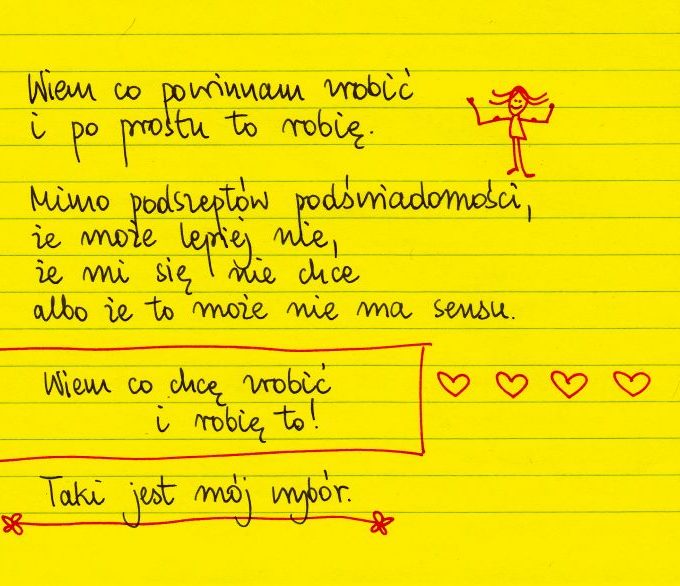 Wiem co powinnam zrobić
i po prostu to robię.
Mimo podszeptów podświadomości,
że może lepiej nie,
że mi się nie chce
albo że to może nie ma sensu.
Wiem co chcę zrobić
i robię to!
Taki jest mój wybór.